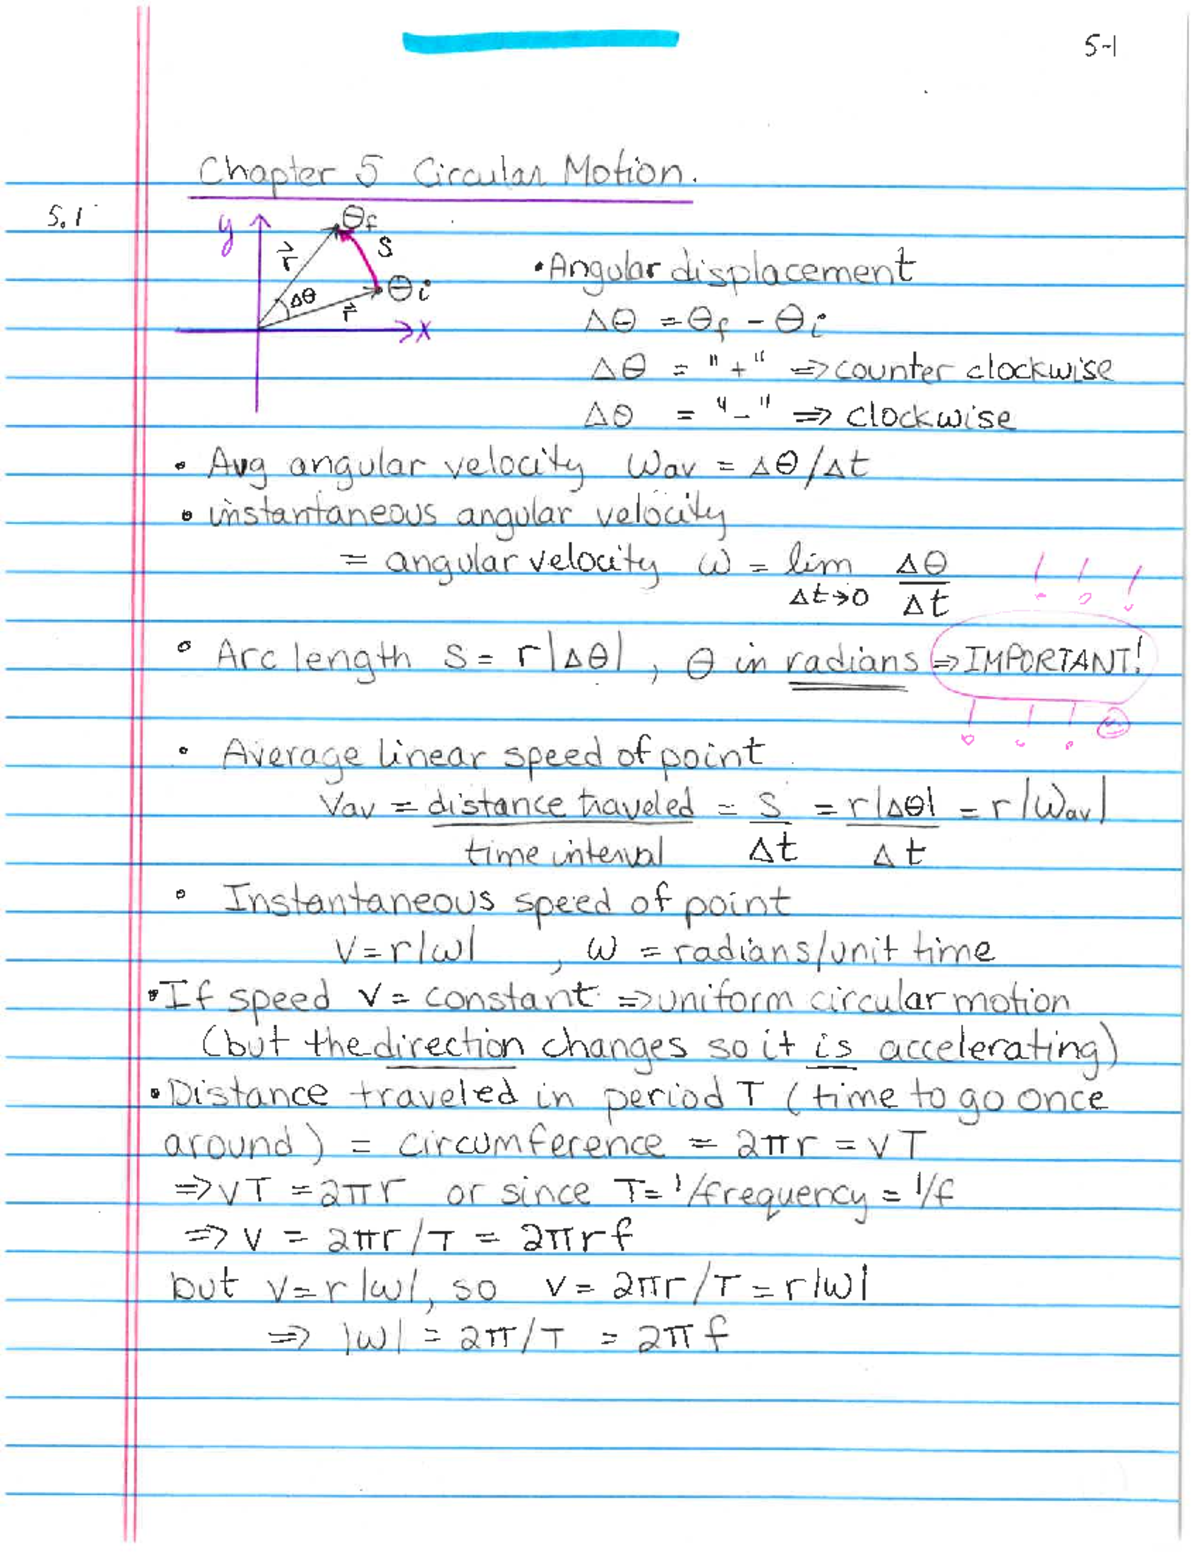 5-1
Chapter 5 Circular Motion.
5.1
y θf
r⃗ S
Δθ θi
r⃗
x
• Angular displacement
Δθ = θf - θi
Δθ = "+" ⇒ counter clockwise
Δθ = "-" ⇒ clockwise
• Avg angular velocity ωav = Δθ/Δt
• instantaneous angular velocity
= angular velocity ω = lim Δθ
Δt→0 Δt
! ! !
• Arc length S = r|Δθ|, θ in radians ⇒ IMPORTANT!
! ! !
• Average linear speed of point
Vav = distance traveled = S = r|Δθ| = r|ωav|
time interval Δt Δt
• Instantaneous speed of point
V = r|ω| , ω = radians/unit time
• If speed v = constant ⇒ uniform circular motion
(but the direction changes so it is accelerating)
• Distance traveled in period T (time to go once
around) = circumference = 2πr = vT
⇒ vT = 2πr or since T = 1/frequency = 1/f
⇒ v = 2πr/T = 2πrf
but v = r|ω|, so v = 2πr/T = r|ω|
⇒ |ω| = 2π/T = 2πf